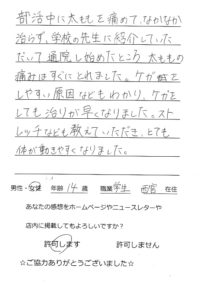 部活中に太ももを痛めて、なかなか
治らず、学校の先生に紹介していた
だいて通院し始めたところ 太ももの
痛みはすぐにとれました。ケガが
しやすい原因などもわかり、ケガを
しても治りが早くなりました。スト
レッチなども教えていただき、とても
体が動きやすくなりました。
男性・女性 年齢 14 歳 職業 学生 西宮 在住
あなたの感想をホームページやニュースレターや
店内に掲載してもよろしいですか?
許可します 許可しません
☆ご協力ありがとうございました☆